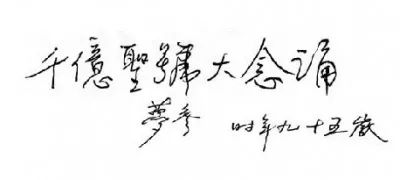 千億聖號大念誦
夢參 时年九十五歲